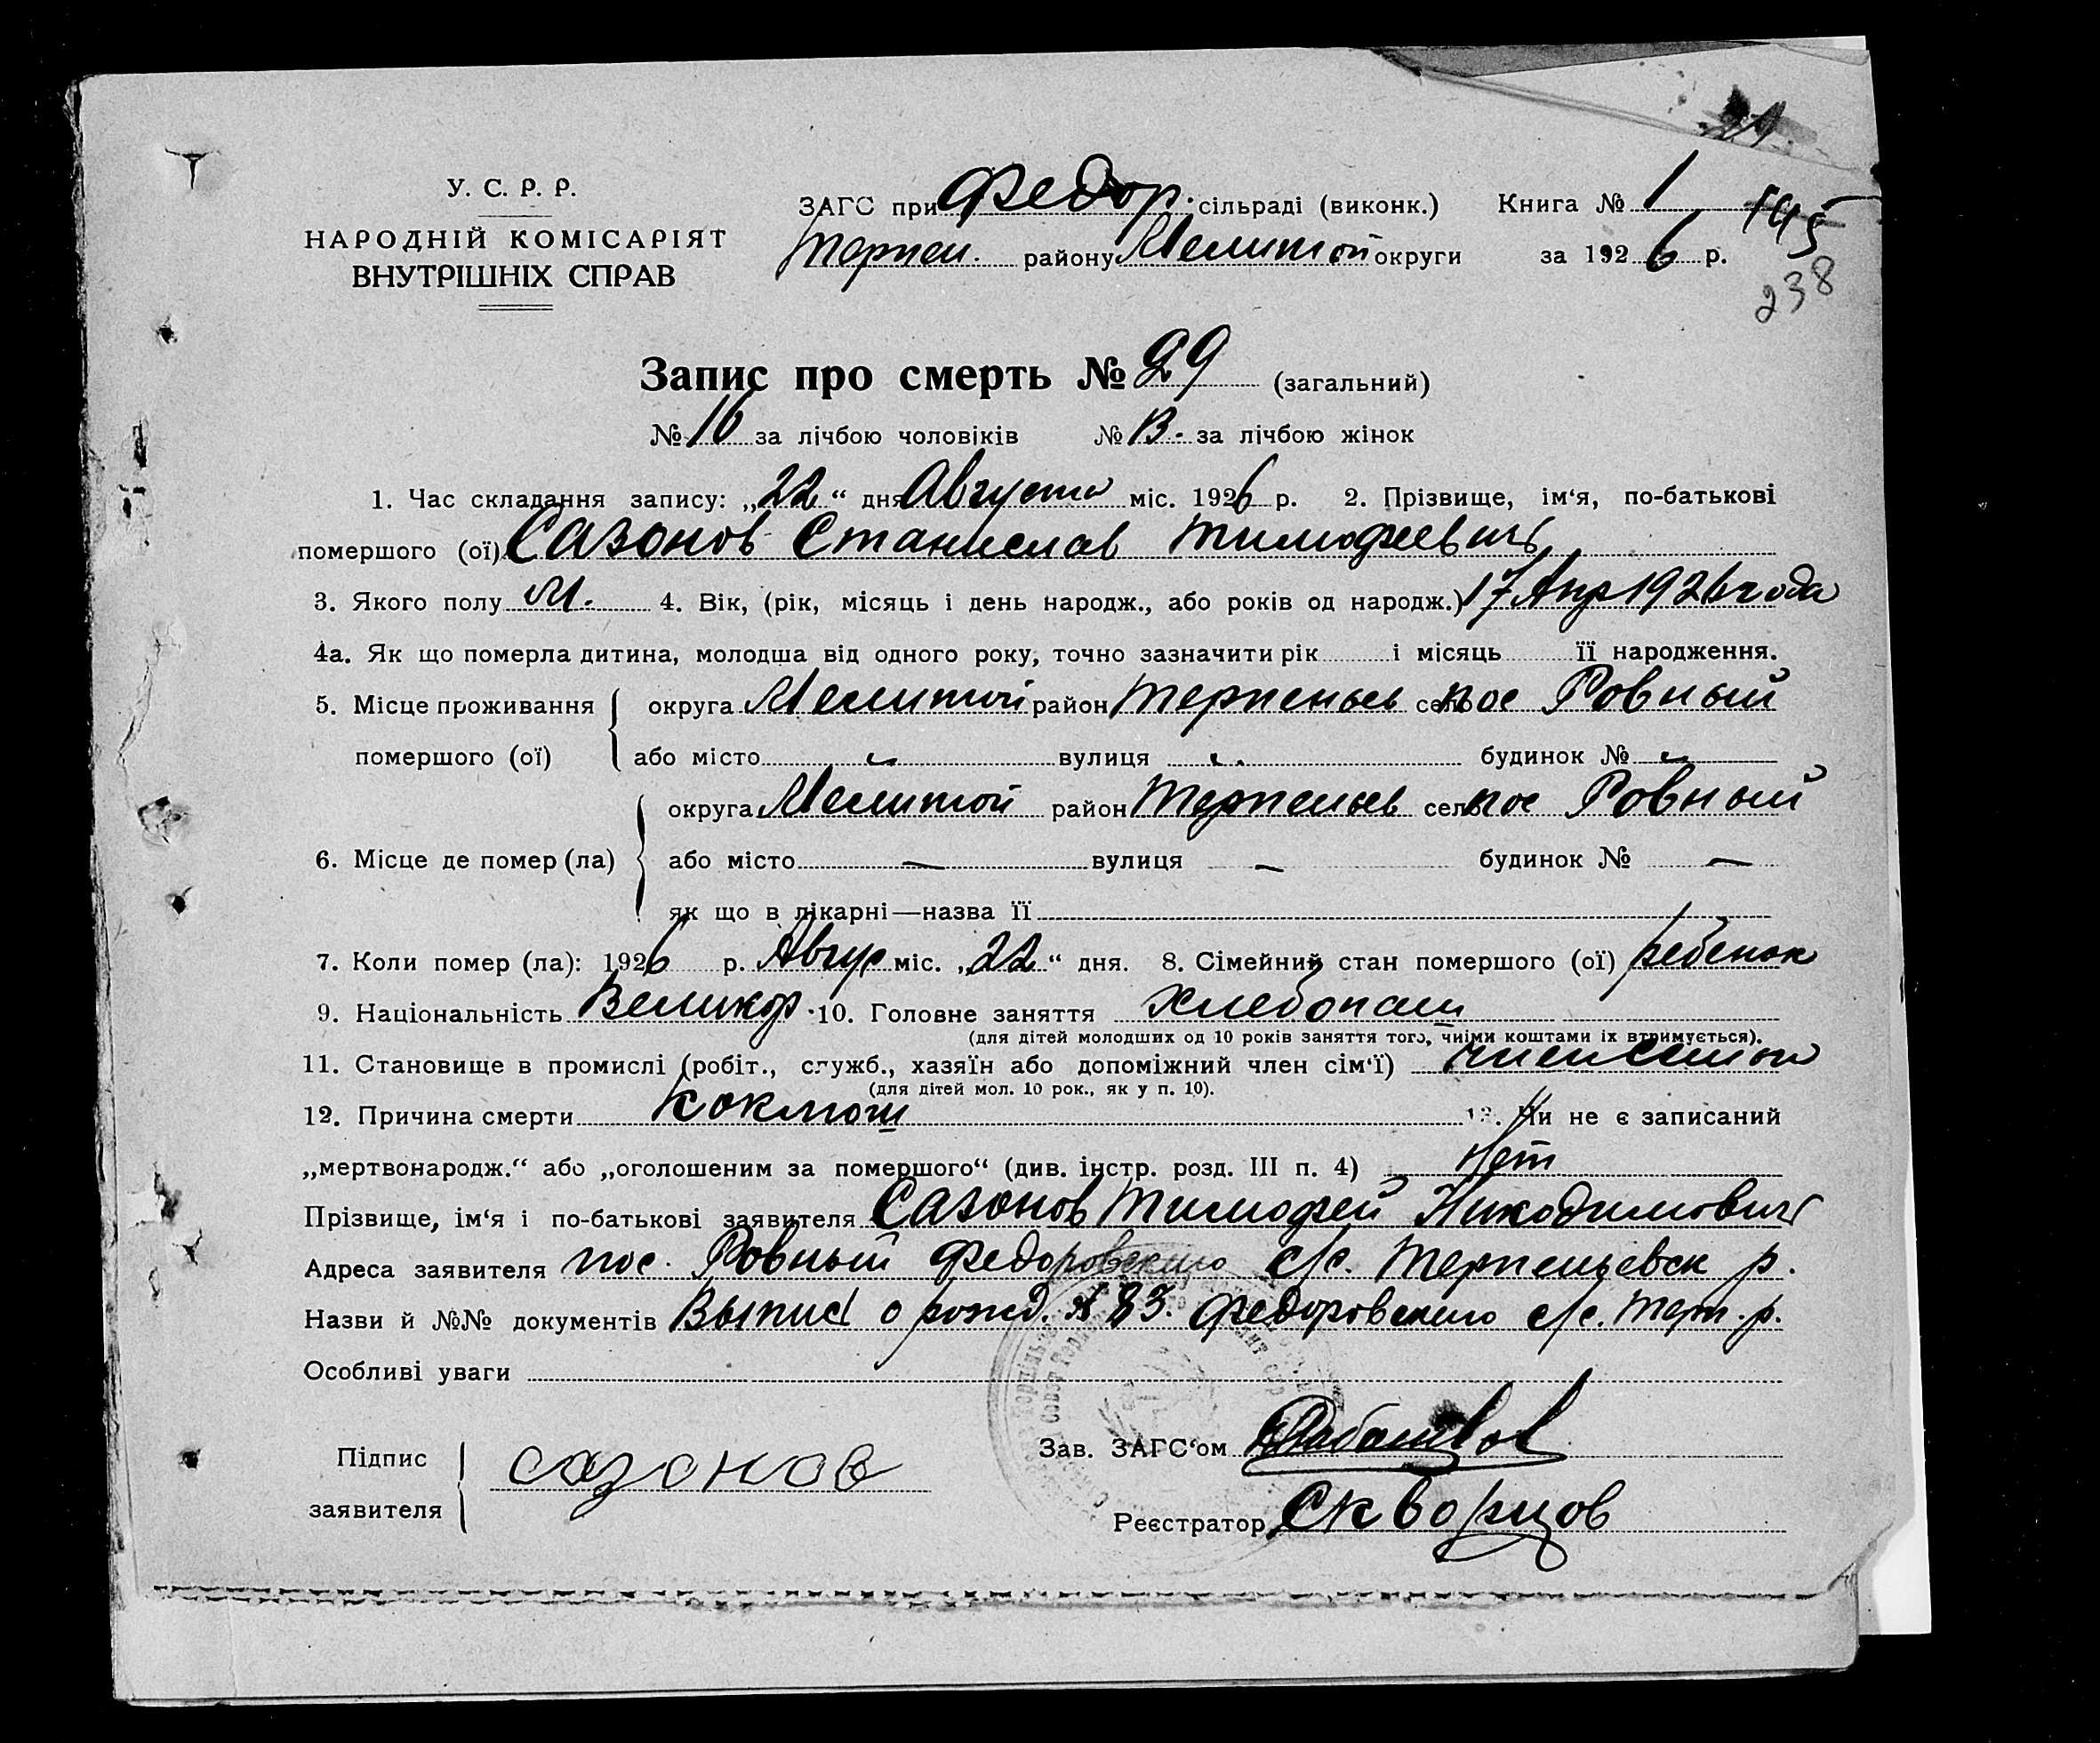 У. С. Р. Р.
НАРОДНІЙ КОМІСАРІЯТ
ВНУТРІШНІХ СПРАВ
ЗАГС при Федор. сільраді (виконк.) Книга № 1
Терпен. району Мелитой округи за 1926 р.
145
238
Запис про смерть № 29 (загальний)
№ 16 за лічбою чоловіків № 13. за лічбою жінок
1. Час складання запису: „22“ дня Августа міс. 1926 р. 2. Прізвище, ім‘я, по-батькові
помершого (ої) Сазонов Станислав Тимофеевич
3. Якого полу М. 4. Вік, (рік, місяць і день народж., або років од народж.) 17 Апр 1926 года
4а. Як що померла дитина, молодша від одного року, точно зазначити рік і місяць її народження.
5. Місце проживання округа Мелитой район Терпеньев село пос Ровный
помершого (ої) або місто „ вулиця „ будинок № „
округа Мелитой район Терпеньев село пос Ровный
6. Місце де помер (ла) або місто — вулиця — будинок № —
як що в лікарні—назва її
7. Коли помер (ла): 1926 р. Авгус міс. „22“ дня. 8. Сімейний стан помершого (ої) ребенок
9. Національність Великор. 10. Головне заняття хлебопаш
(для дітей молодших од 10 років заняття того, чиїми коштами їх втримується).
11. Становище в промислі (робіт., служб., хазяїн або допоміжний член сім‘ї) член семьи
(для дітей мол. 10 рок., як у п. 10).
12. Причина смерти коклюш 13. Чи не є записаний
„мертвонародж.“ або „оголошеним за помершого“ (див. інстр. розд. III п. 4) Нет
Прізвище, ім‘я і по-батькові заявителя Сазонов Тимофей Никодимович
Адреса заявителя пос. Ровный Федоровского с/с. Терпеньевск р.
Назви й №№ документів Выпись о рожд. № 83. Федоровского с/с. Терп. р.
Особливі уваги
Підпис
заявителя
сазонов
Зав. ЗАГС‘ом
Реєстратор Скворцов